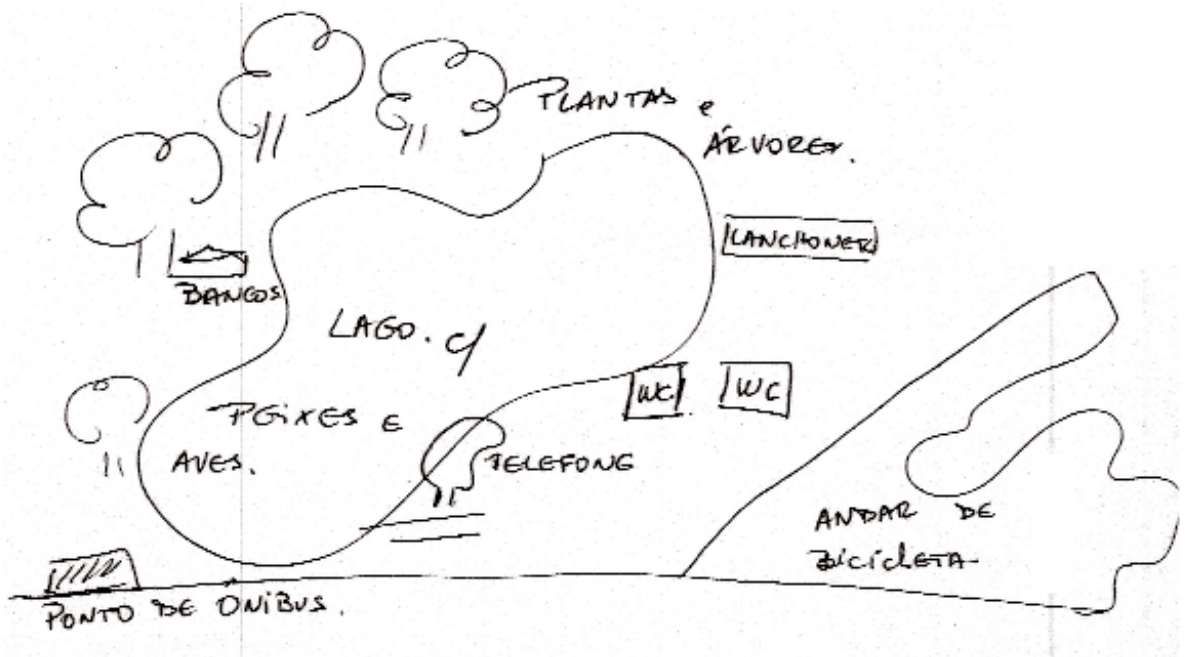 PLANTAS e
ÁRVORES.
LANCHONETE
BANCOS
LAGO. c/
PEIXES E
AVES.
WC
WC
TELEFONE
ANDAR DE
BICICLETA
PONTO DE ONIBUS.